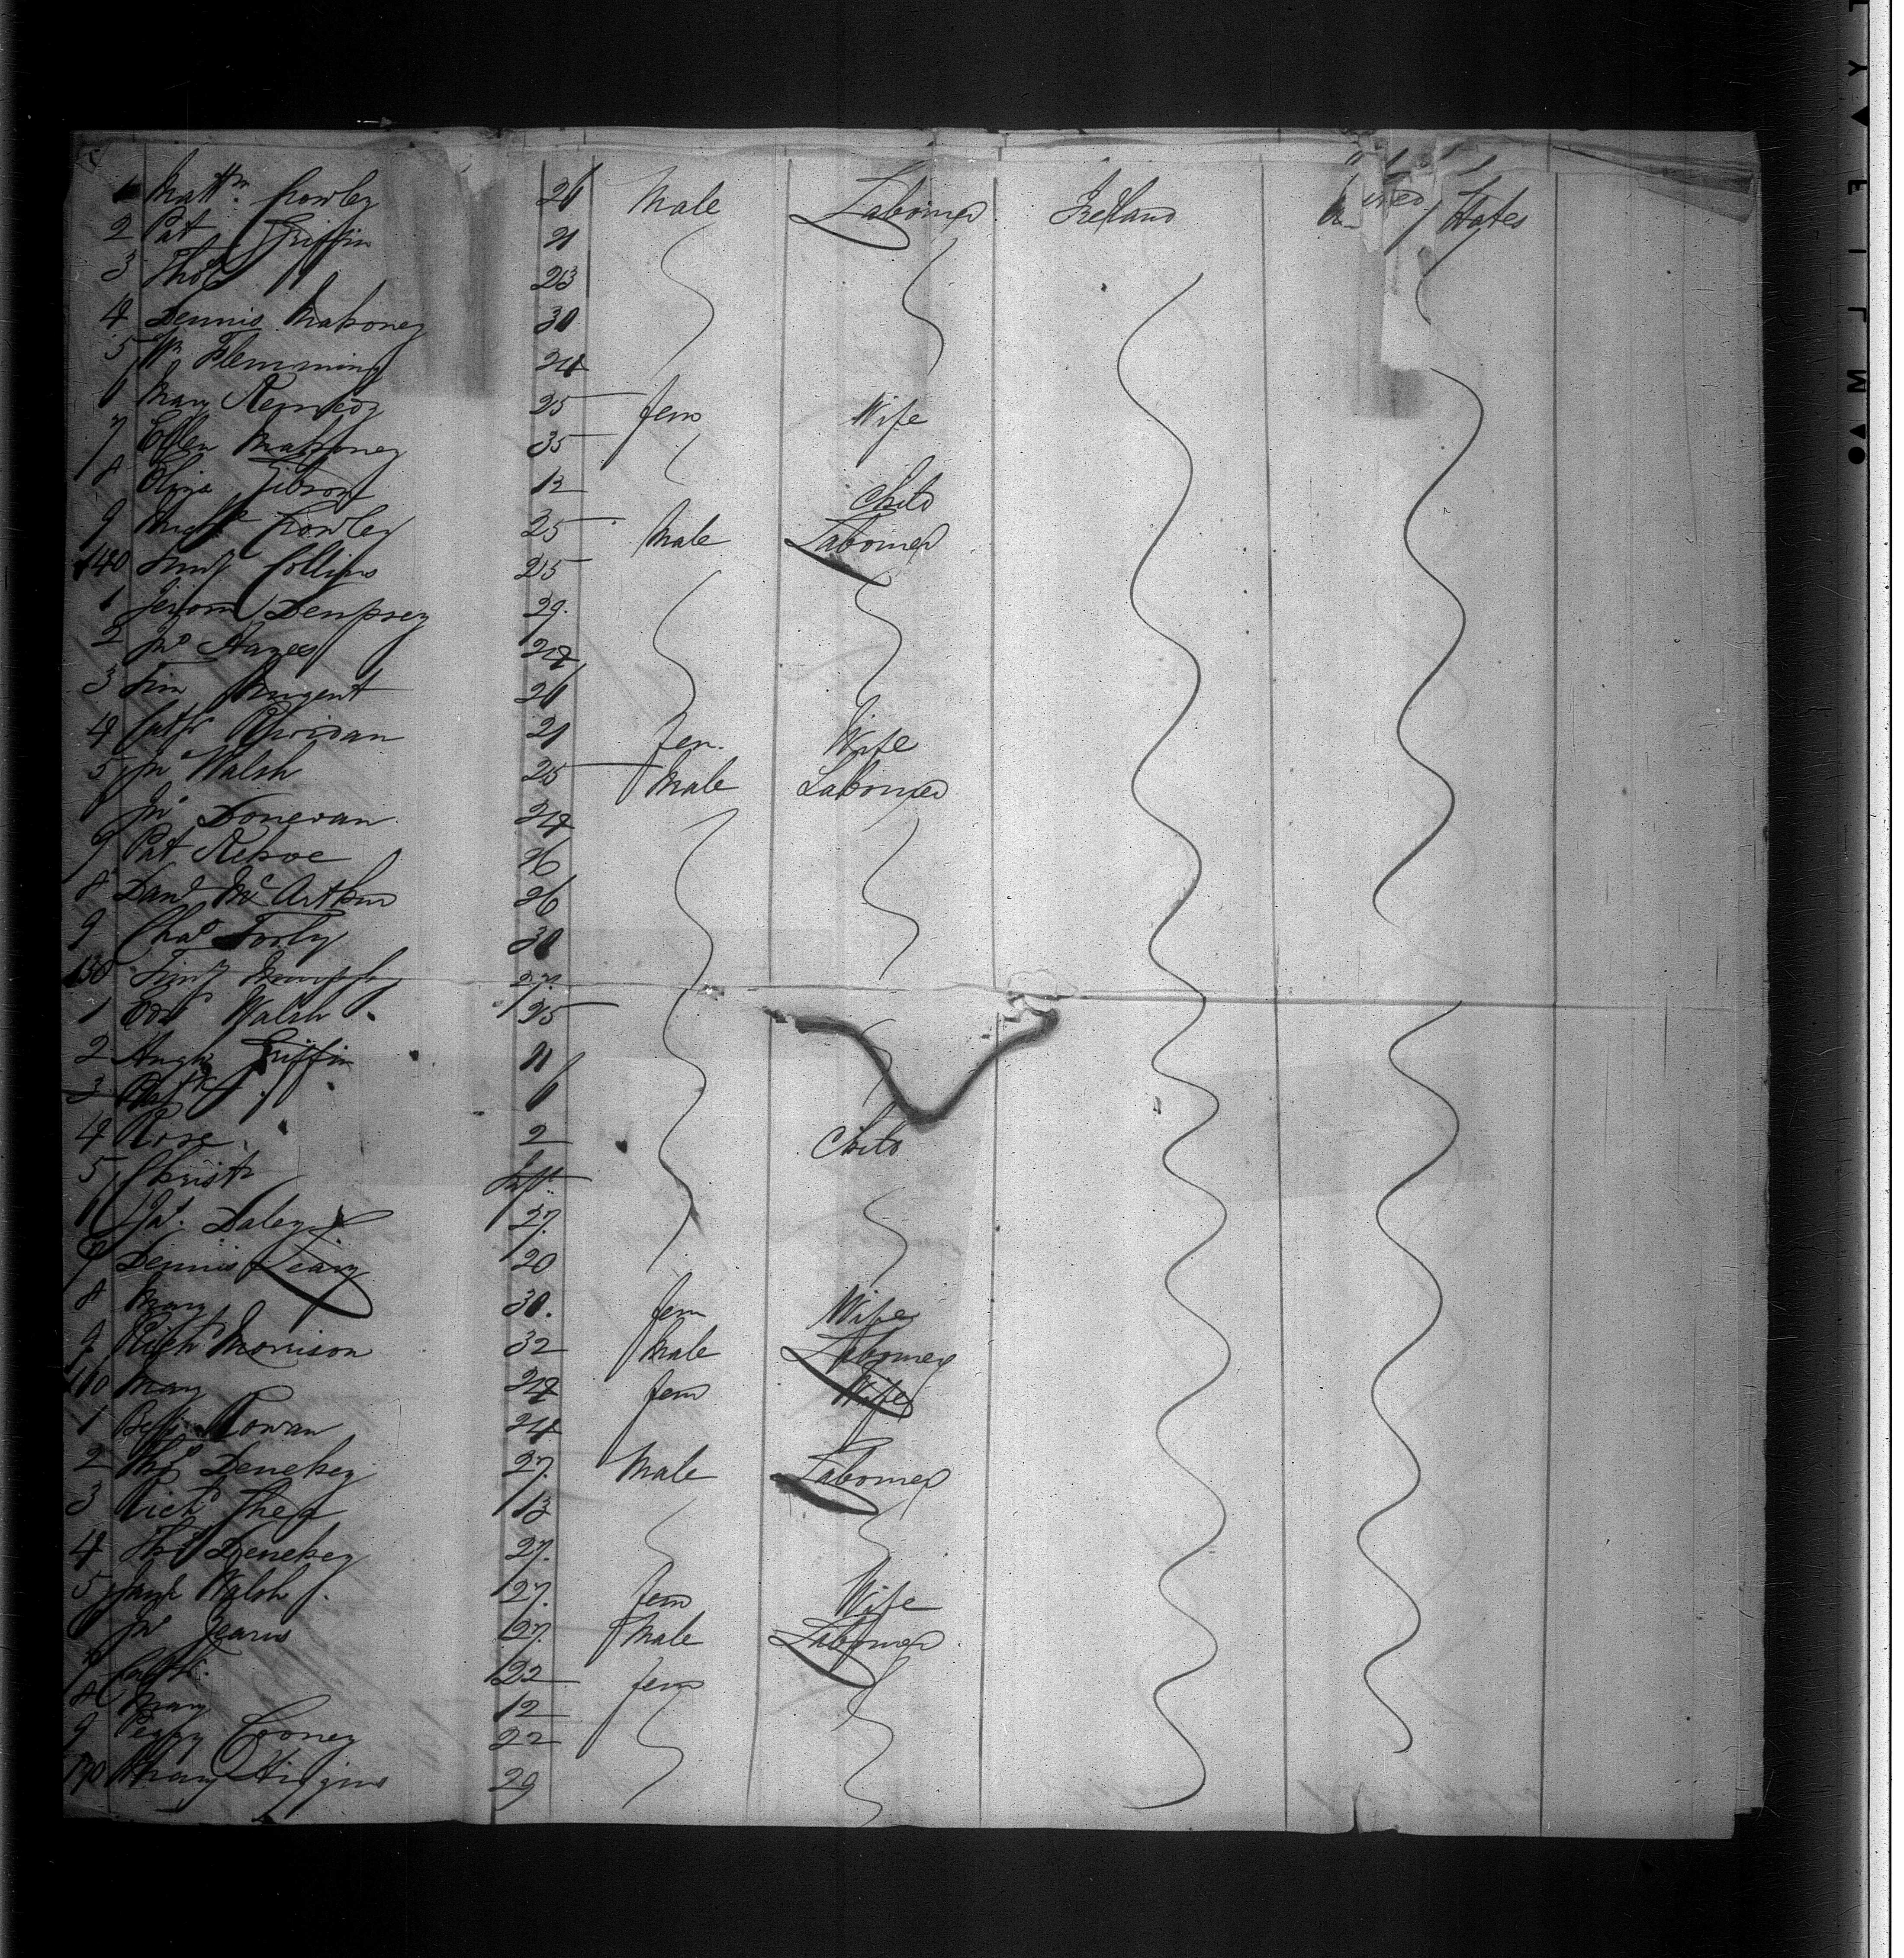 1 Matthw. Crowley 26 Male Labourer Ireland United States
2 Pat Griffin 21
3 Thos " 23
4 Dennis Mahoney 30
5 Wm Flemming 24
6 Mary Kennedy 25 fem Wife
7 Ellen Mahoney 35
8 Eliza Gibson 12 Child
9 Michl Crowley 25 Male Labourer
140 Timy Collins 25
1 Jerom Dempsey 29
2 Jno Hayes 24
3 Tim Nugent 21
4 Cathe 21 fem. Wife
5 Jno Walsh 25 Male Labourer
Jno Donevan 24
7 Pat Kehoe 26
8 Danl McArthur 26
9 Chas Fooly 30
150 Timy Murphy 27
1 Edwd Walsh 25
2 Griffin 11
3 Patk " 6
4 Rose 2 Child
5 Christr Inft
6 Daley 27
7 Dennis Leary 20
8 Mary 30 fem Wife
9 Richd Morrison 32 Male Labourer
160 Mary 24 fem Wife
1 Rowan 24
2 Thos Denehey 27 Male Labourer
3 Richd 13
4 Thos Denehey 27
5 Walsh 27 fem Wife
6 Jno 27 Male Labourer
7 Cathe. 22 fem
8 Mary 12
9 Peggy Cooney 22
170 Mary Higgins 29